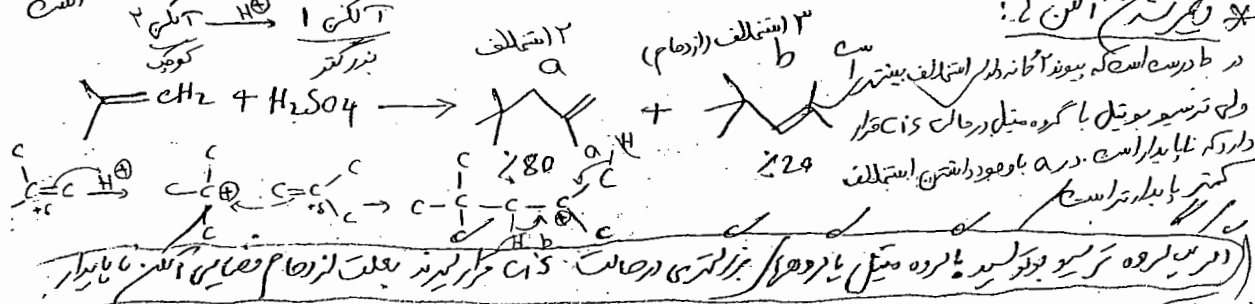 * دیمر شدن آلکن ها:
۲ آلکن H⊕ → ۱ آلکن
کوچک بزرگتر
۲ استخلاف ۳ استخلاف (ازدحام)
a b
=CH2 + H2SO4 → +
%80 %20
در b درست است که پیوند ۲ گانه دارای استخلاف بیشتر است
ولی ترسیو بوتیل با گروه متیل در حالت cis قرار
دارد که ناپایدار است. در a با وجود داشتن استخلاف
کمتر پایدارتر است
C=C H⊕ → C-C⊕ C=C → C-C-C-C⊕
+δ +δ H b a H
اگر یک گروه ترسیو بوتیل با گروه متیل یا گروههای بزرگتری در حالت cis قرار گیرند بعلت ازدحام فضایی آلکن ناپایدار